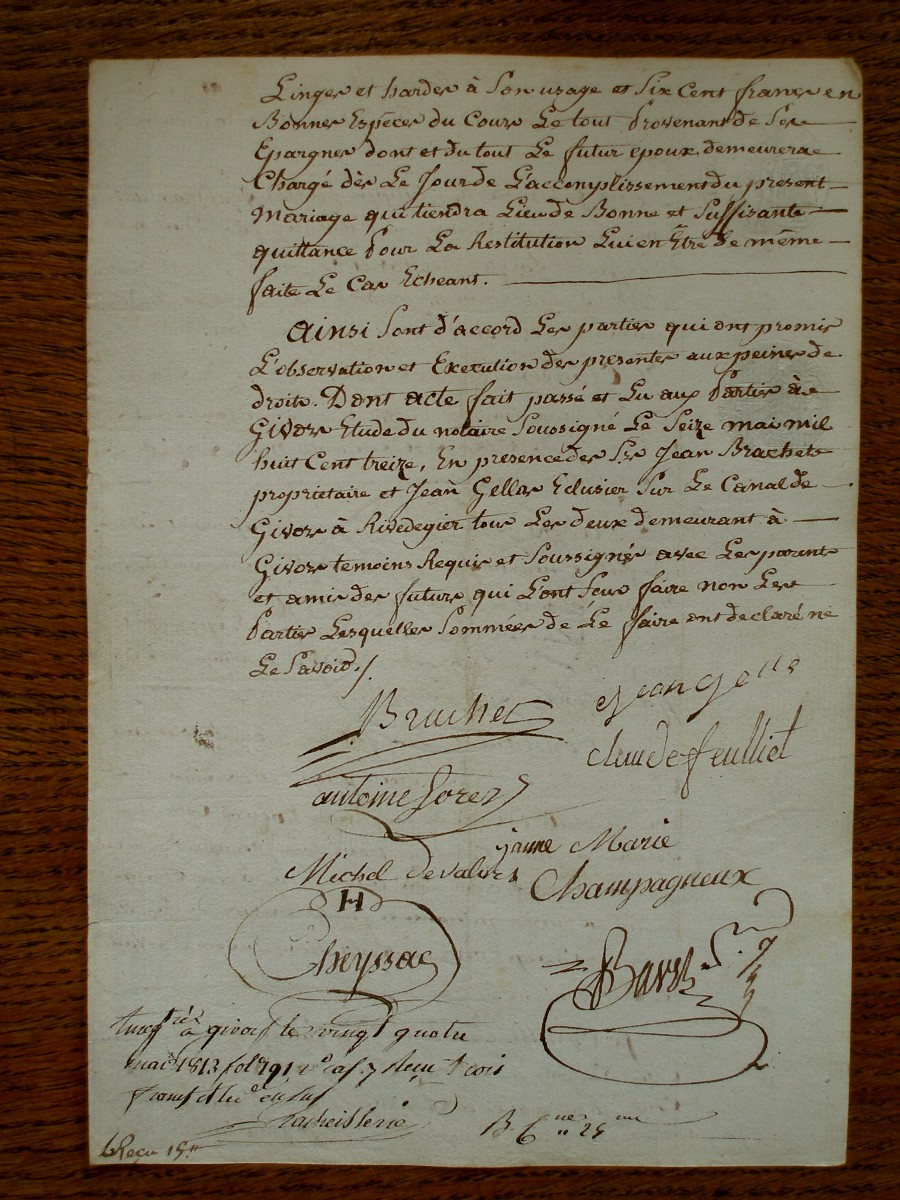 Linges et hardes à Son usage et Six Cent francs en
Bonnes Espèces du Cours Le tout Provenant de Ses
Epargnes dont et du tout Le futur epoux demeurera
Chargé dès Le Jour de L'accomplissement du present
Mariage qui tiendra Lieu de Bonne et Suffisante
quittance Pour La Restitution Lui en Être de même
faite Le Cas Echeant.
Ainsi Sont d'accord Les parties qui ont promis
L'observation et Execution des presentes aux peines de
droits. Dont acte fait passé et Lu aux Parties à
Givors Etude du notaire Soussigné Le Seize mai mil
huit Cent treize, En presence des Srs Jean Brachet
proprietaire et Jean Gellas Eclusier Sur Le Canal de
Givors à Rivedegier tous Les deux demeurant à
Givors temoins Requis et Soussignés avec Les parents
et amis des futurs qui L'ont Seus faire non Les
Parties Lesquelles Sommées de Le faire ont declaré ne
Le Savoir./
Brachet
Jean Gella
Claude feulliet
antoine Lorez
janne Marie
Michel devalors
Champagneux
H
Cheyssac
givors le vingt quatre
mai 1813 fol 191 vo Cas. 7 Reçu trois
francs
B 6 25
Reçu 15